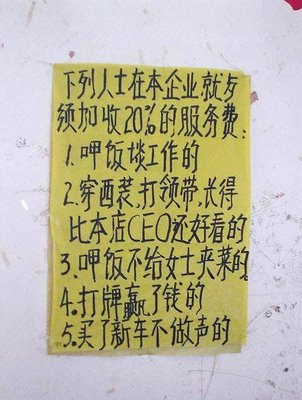 下列人士在本企业就歺
须加收20%的服务费:
1.呷饭谈工作的
2.穿西装,打领带,长得
比本店CEO还好看的
3.呷饭不给女士夹菜的
4.打牌赢了钱的
5.买了新车不做声的